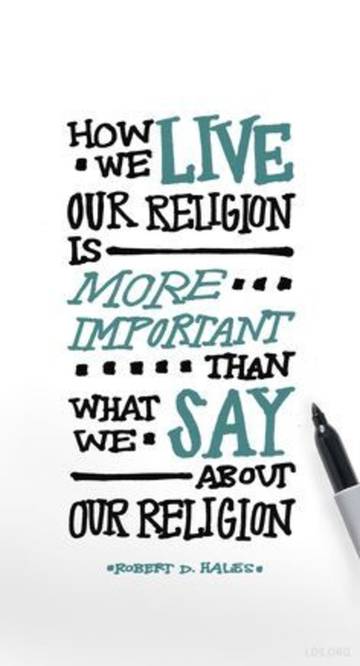 HOW WE LIVE
OUR RELIGION
IS
MORE
IMPORTANT
THAN
WHAT WE SAY
ABOUT
OUR RELIGION
ROBERT D. HALES
LDS.ORG